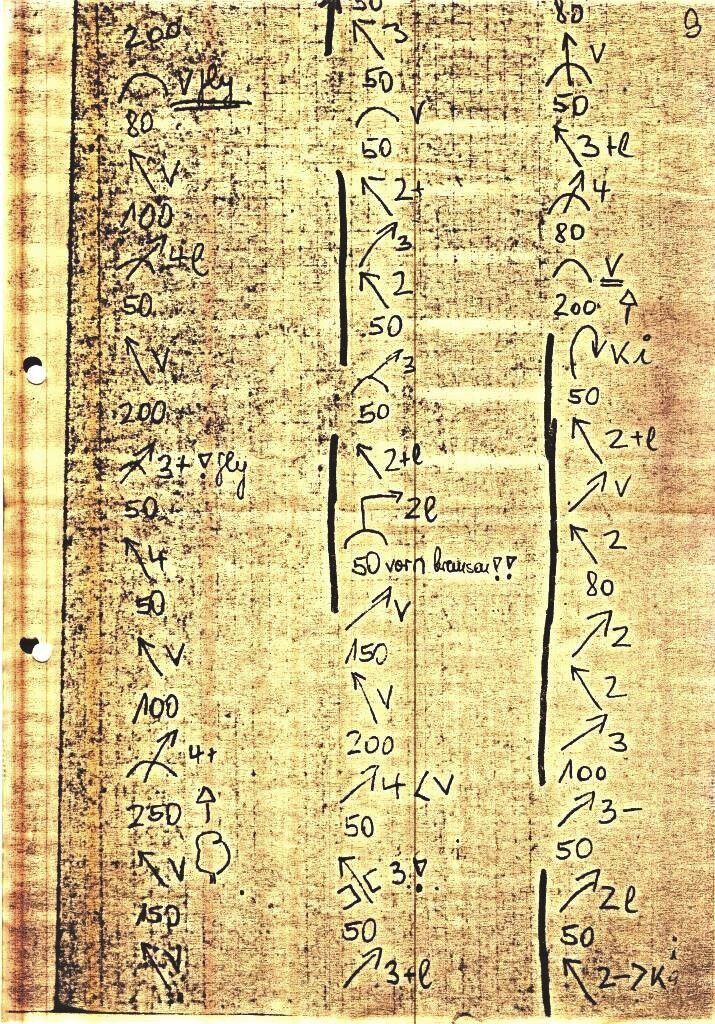 9
200
! fly
80
V
100
4l
50
V
200
3+ ! fly
50
4
50
V
100
4+
250
V
150
V
50
3
50
V
50
2+
3
2
50
3
50
2+l
2l
50 vorn bremsen !!
V
150
V
200
4 < V
50
3 !
50
3+l
80
V
50
3+l
4
80
V
200
Ki
50
2+l
V
2
80
2
2
3
100
3-
50
2l
50
2 -> Ki